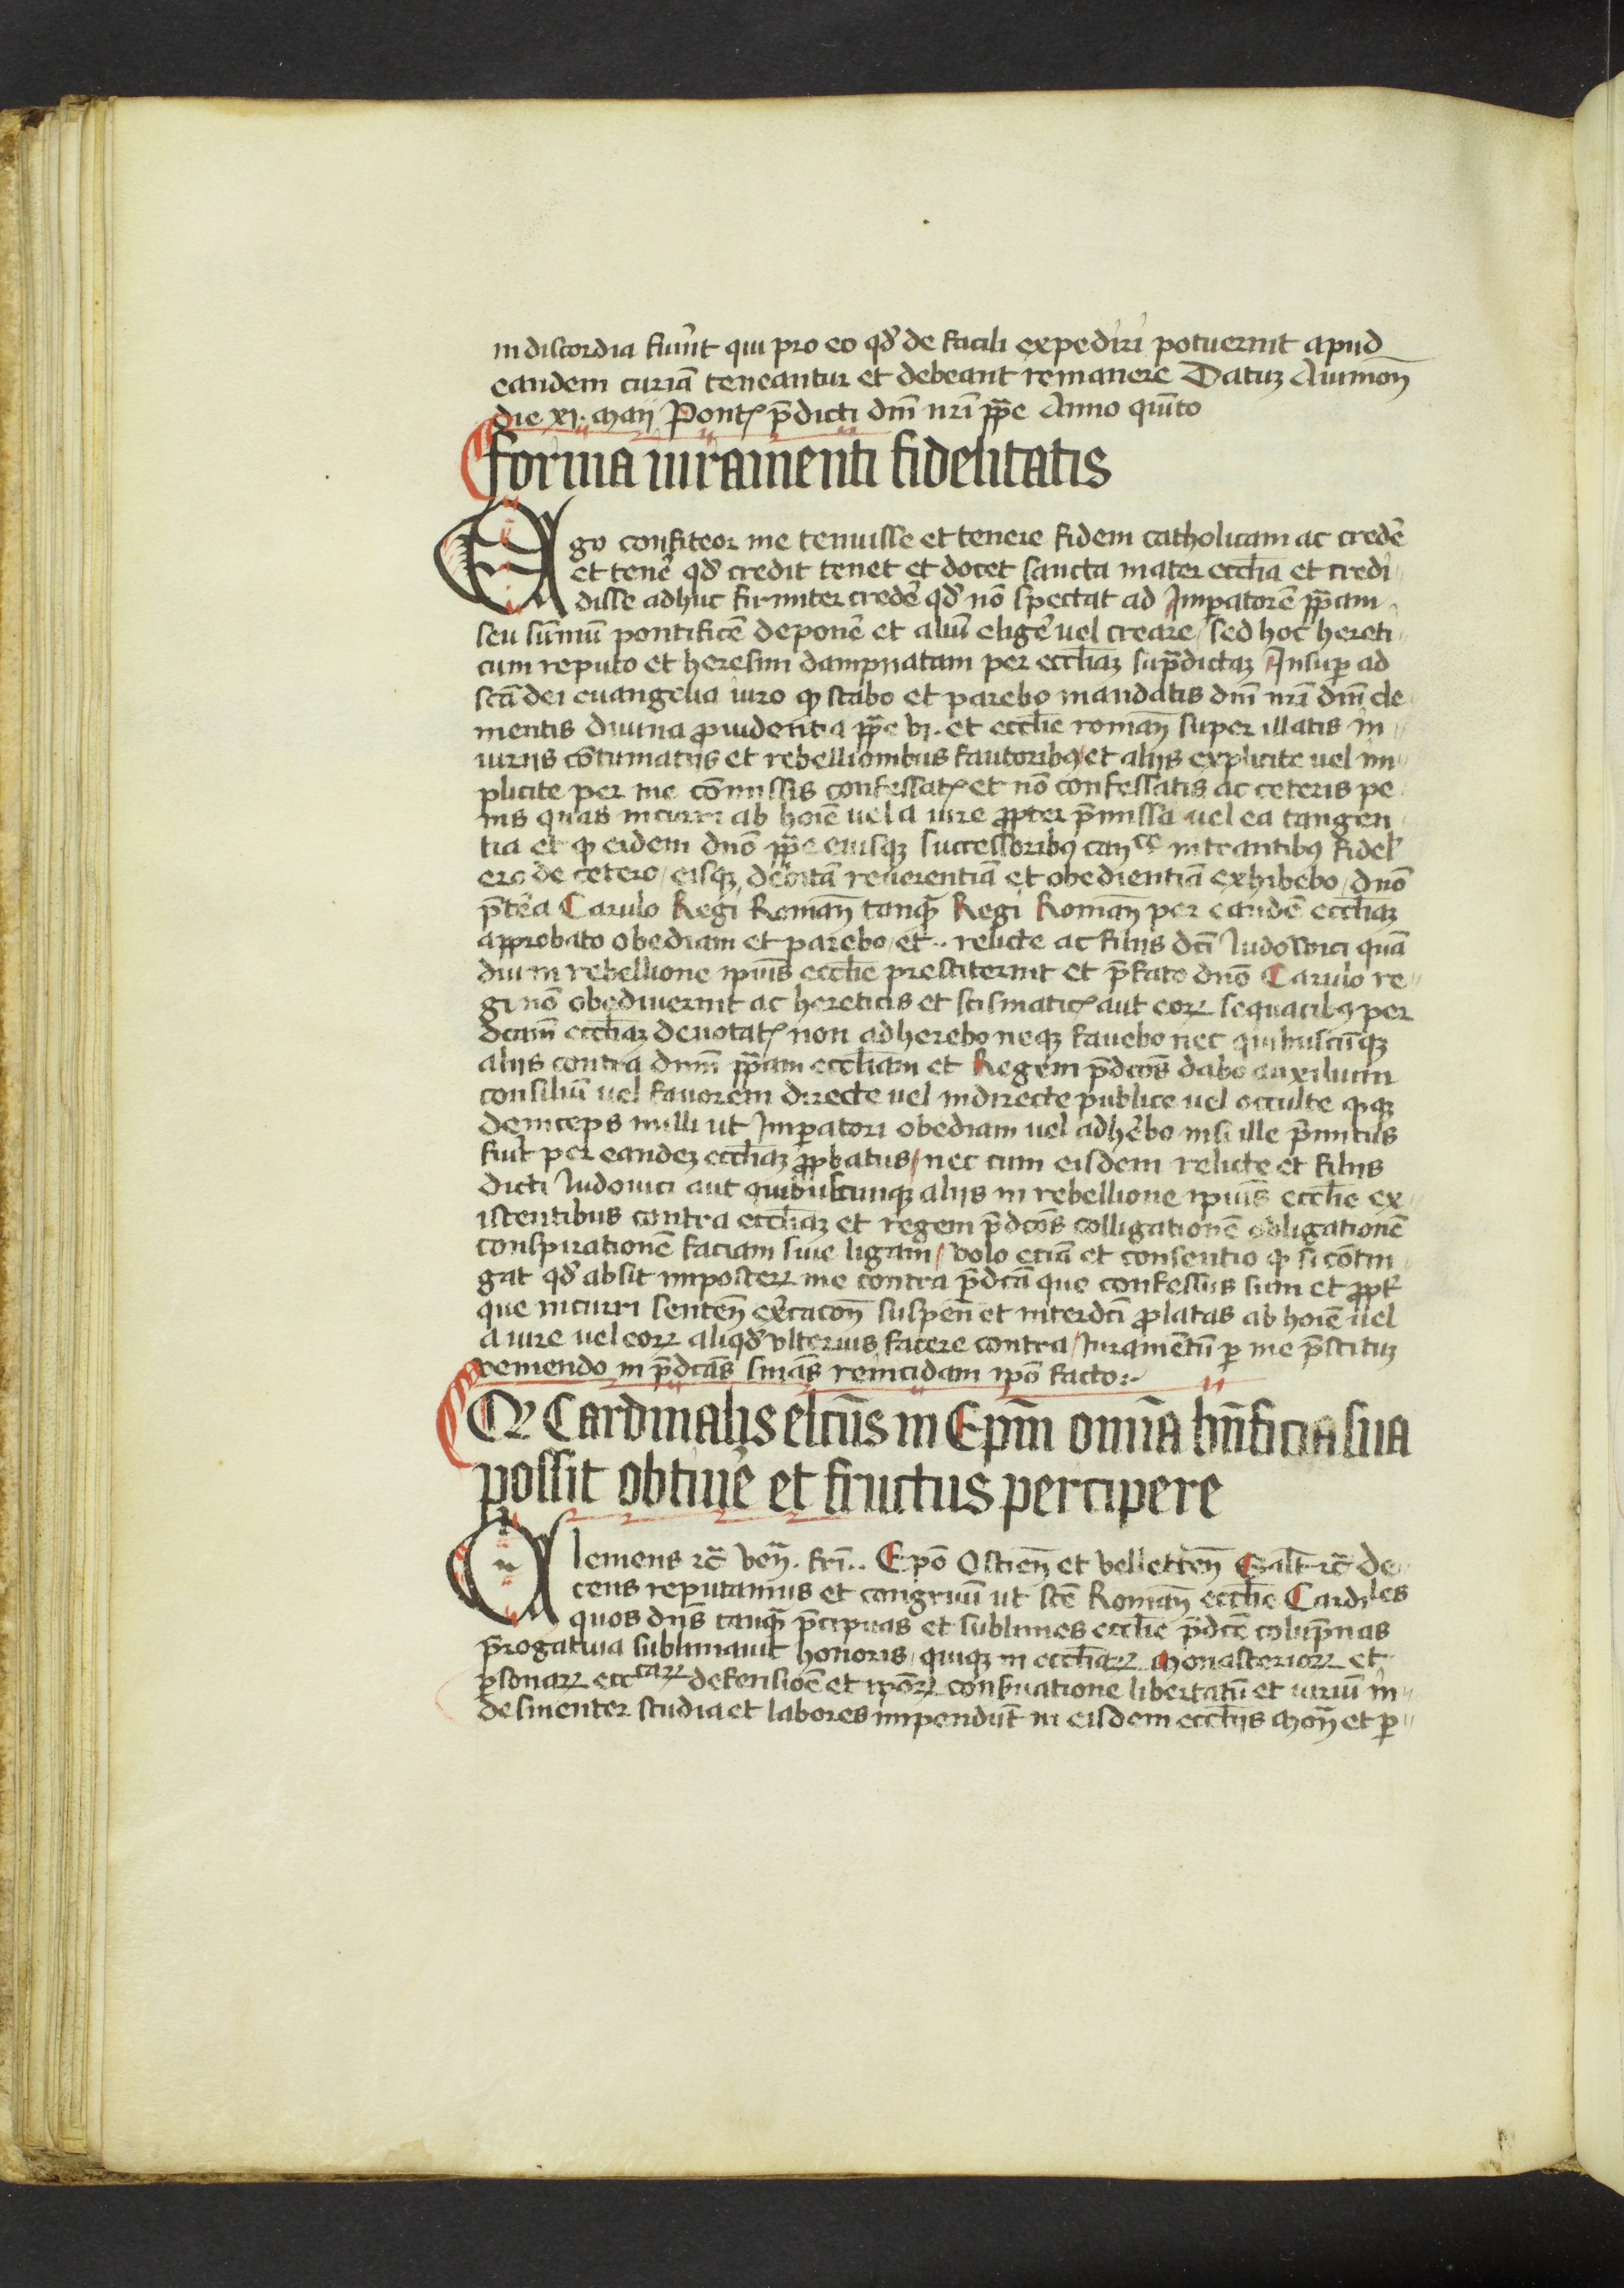 in discordia fiunt̄ qui pro eo qd̕ de facili expediri potuerint apud
eandem curiā teneantur et debeant remanere Datuʒ Auinion̄
die xj. maij Pont̄ p̄dicti dnī nrī pp̄e Anno quīto
Forma iuramenti fidelitatis
Ego confiteor me tenuisse et tenere fidem catholicam ac credē
et tenē qd̕ credit tenet et docet sancta mater ecclīa et credi
disse adhuc firmiter credē qd̕ nō spectat ad Imꝑatorē pp̄am
seu sūmū pontificē deponē et aliū eligē uel creare / sed hoc hereti
cum reputo et heresim dampnatam per ecclīaʒ sup̄dictaʒ Insuꝑ ad
scā dei euangelia iuro ꝙ stabo et parebo mandatis dnī nrī dnī cle
mentis diuina ꝓuidentia pp̄e vj. et ecclīe roman̄ super illatis in
iuriis cōtumatiis et rebellionibus fautoribꝯ et aliis explicite uel im
plicite per me cōmissis confessat̄ et nō confessatis ac ceteris pe
nis quas incurri ab hoīe uel a iure ꝓpter p̄missa uel ea tangen
tia et ꝙ eidem dnō pp̄e eiusqʒ successoribꝯ can̄ce intrantibꝯ fidel̕
ero de cetero / eisqʒ debitā reuerentiā et obedientiā exhibebo / dnō
p̄tēa Carulo Regi Roman̄ tanqꝫ Regi Roman̄ per eandē ecclīaʒ
approbato obediam et parebo / et .. relicte ac filiis dcī ludowici quā
diu in rebellione ipiūs ecclīe prestiterint et p̄fato dnō Carulo re
gi nō obediuerint ac hereticis et scismatic̄ aut eoꝝ sequacibꝯ per
dcām ecclīaʒ denotat̄ non adherebo neqʒ fauebo nec quibuscūqʒ
aliis contra dnm̄ pp̄am ecclīam et Regem p̄dcōs dabo auxilium
consiliū uel fauorem directe uel indirecte publice uel occulte ꝙqʒ
deinceps nulli ut Imꝑatori obediam uel adhēbo nisi ille p̄mitus
fuīt per eandeʒ ecclīaʒ ꝓpbatus / nec cum eisdem relicte et filiis
dicti ludouici aut quibuscunqʒ aliis in rebellione ipiūs ecclīe ex
istentibus contra ecclīaʒ et regem p̄dcōs colligationē obligationē
conspirationē faciam siue ligam / volo eciā et consentio ꝙ si cōtin
gat qd̕ absit imposteꝝ me contra p̄dcā que confessus sum et ꝓpt̕
que incurri senten̄ ex̄cacon̄ suspen̄ et interdcī ꝓlatas ab hoīe uel
a iure uel eoꝝ aliqd̕ vlterius facere contra / Iuramētū ꝑ me p̄stituʒ
uemendo in p̄dcās sniās reincidam ipō facto :~
Qꝫ Cardinalis elcūs in Epm̄ omīa bn̄ficia sua
possit obtinē et fructus percipere
Clemens ⁊c̄ Ven̄. frī .. Epō Ostien̄ et velletren̄ Salt̄ ⁊c̄ de
cens reputamus et congruū ut scē Roman̄ ecclīe Cardiles
quos dn̄s tanqꝫ p̄cipuas et sublimes ecclīe p̄dcē colup̄nas
p̄rogatiua sublimauit honoris / quiqʒ in ecclīaꝝ monasterioꝝ et
ꝑsonaꝝ ecccaꝝ defensiōē et ipōꝝ conseruatione libertatū et iuriū in
desinenter studia et labores impendūt in eisdem ecclīis mon̄ et ꝑ